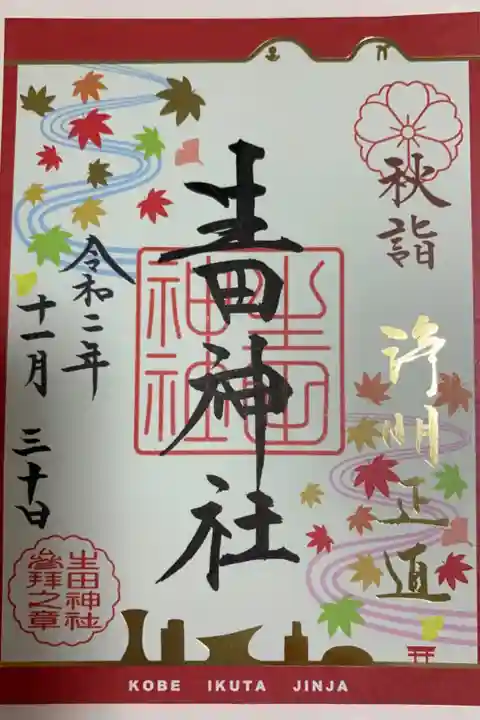 秋詣
浄明正直
生田神社
生田
神社
令和二年
十一月 三十日
生田神社
參拜之章
KOBE IKUTA JINJA